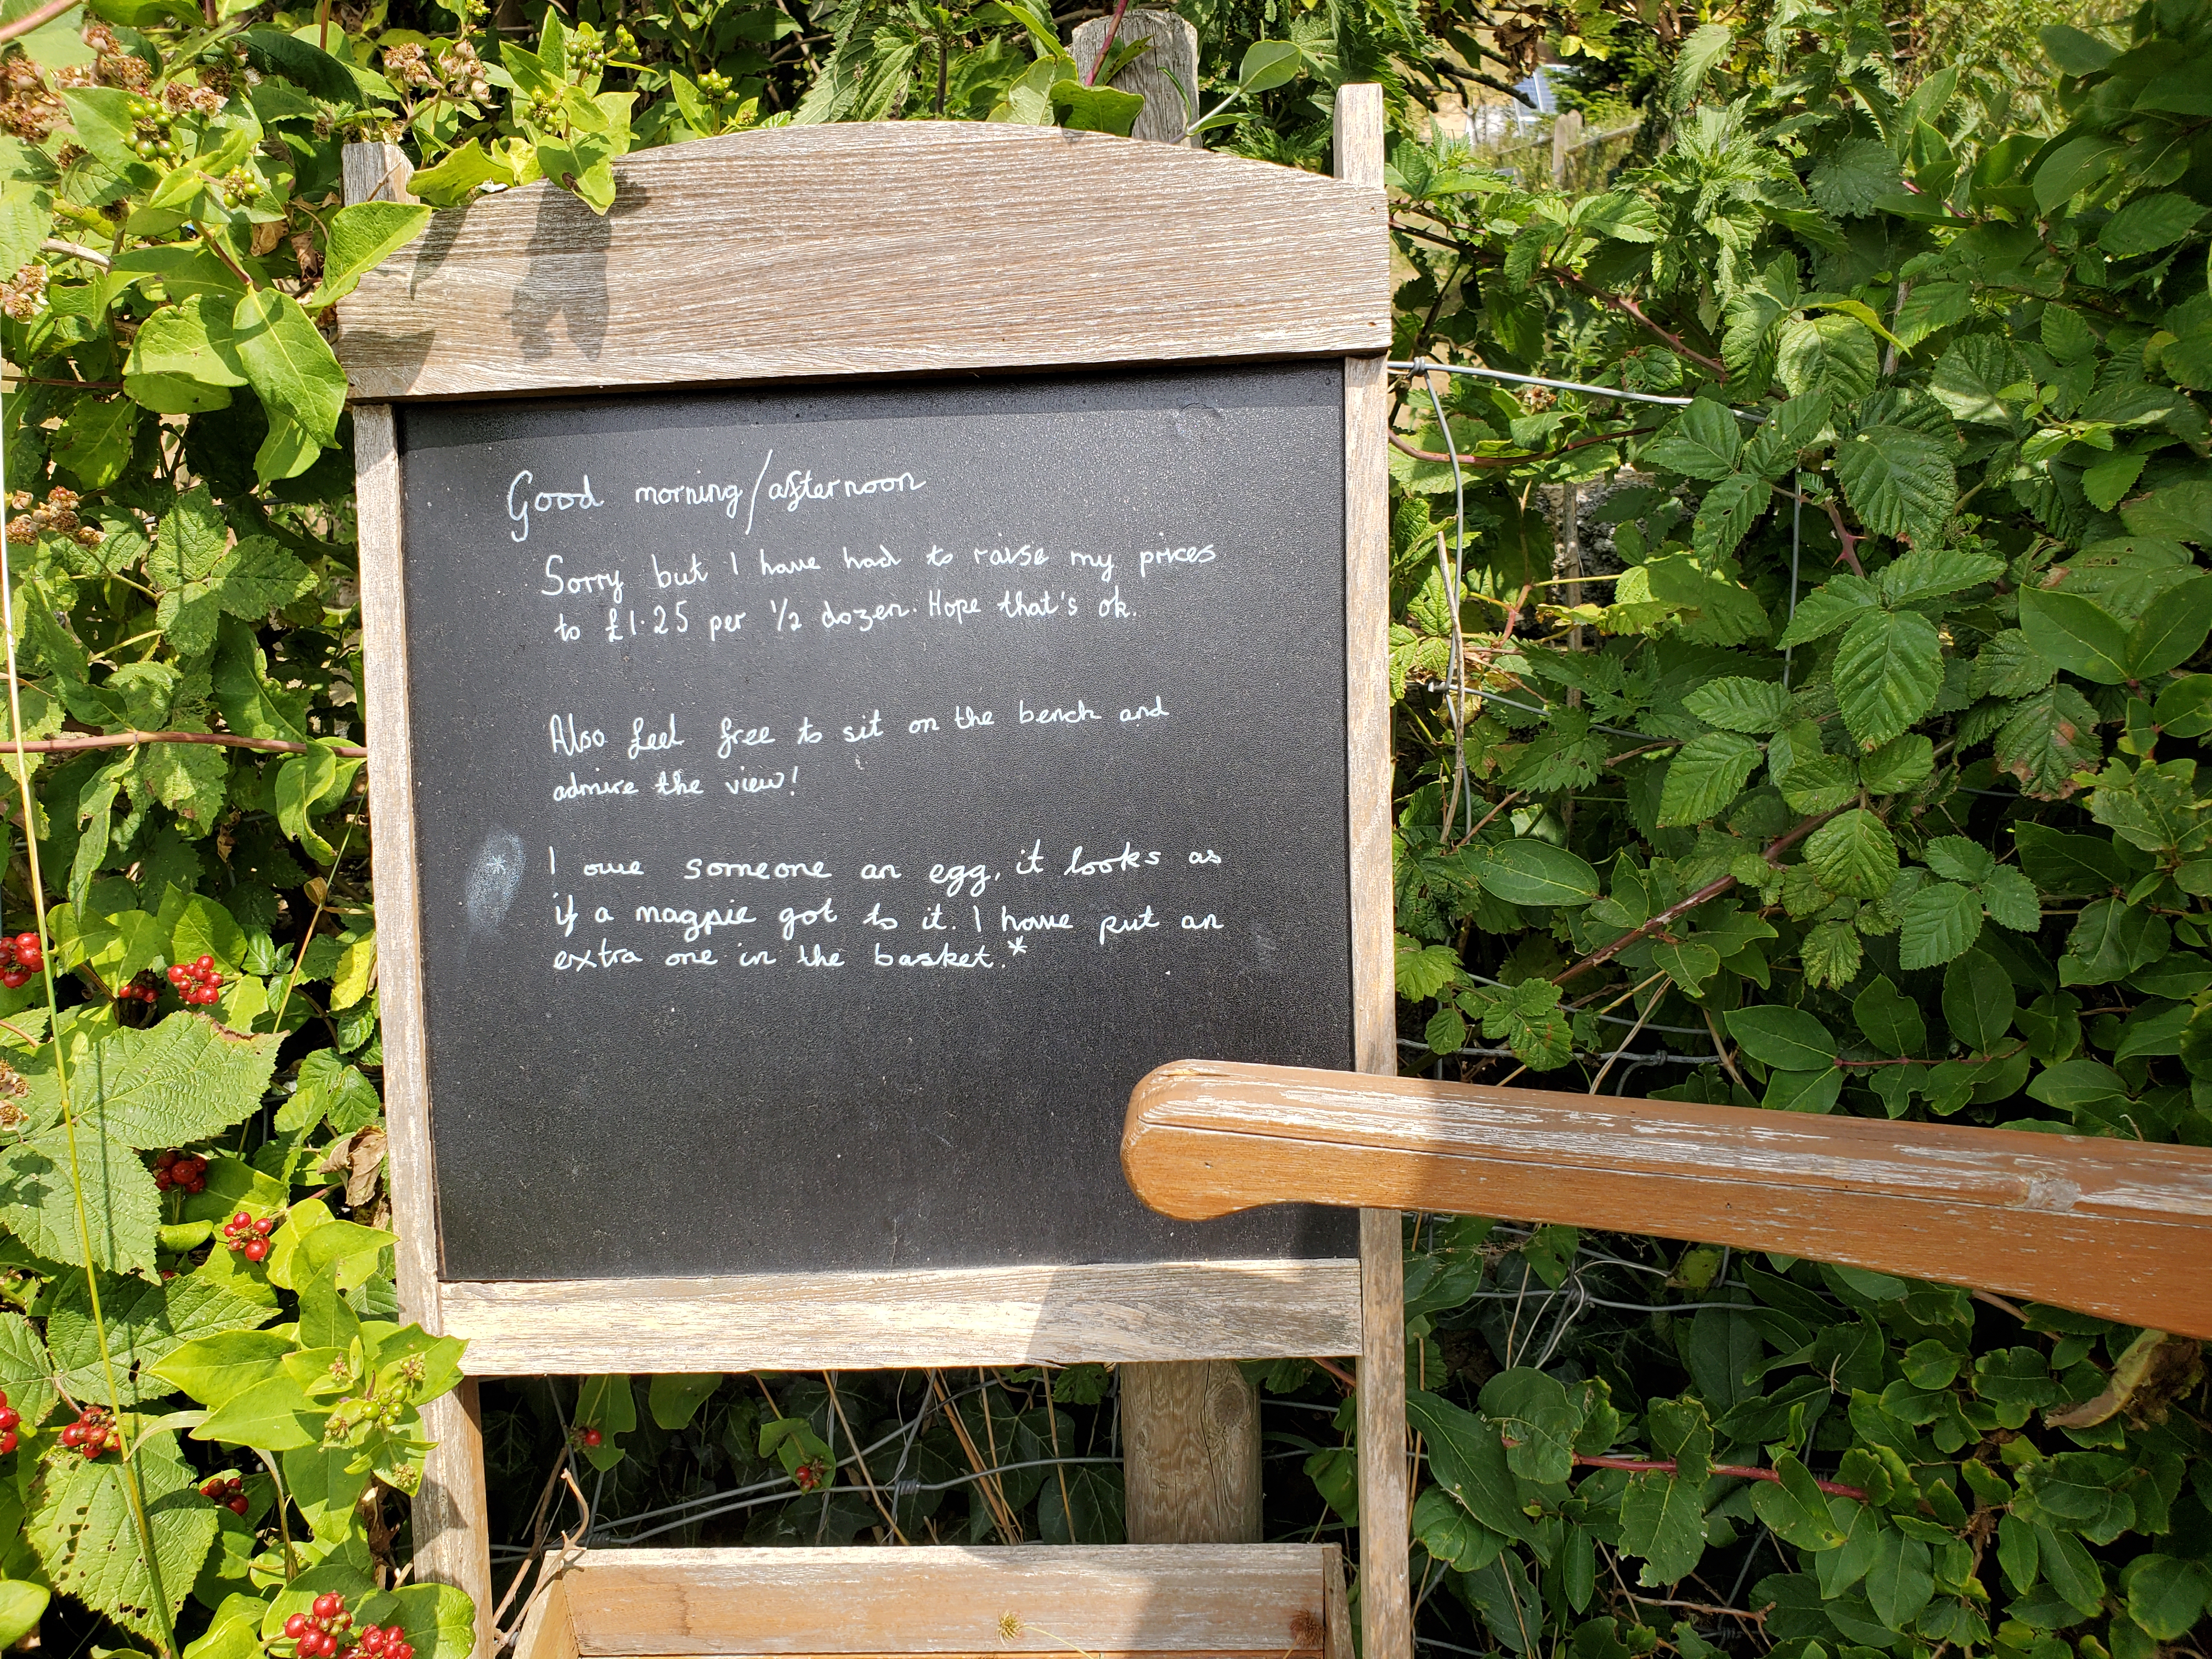 Good morning/afternoon
Sorry but I have had to raise my prices
to £1.25 per 1/2 dozen. Hope that's ok.
Also feel free to sit on the bench and
admire the view!
* I owe someone an egg, it looks as
if a magpie got to it. I have put an
extra one in the basket.*